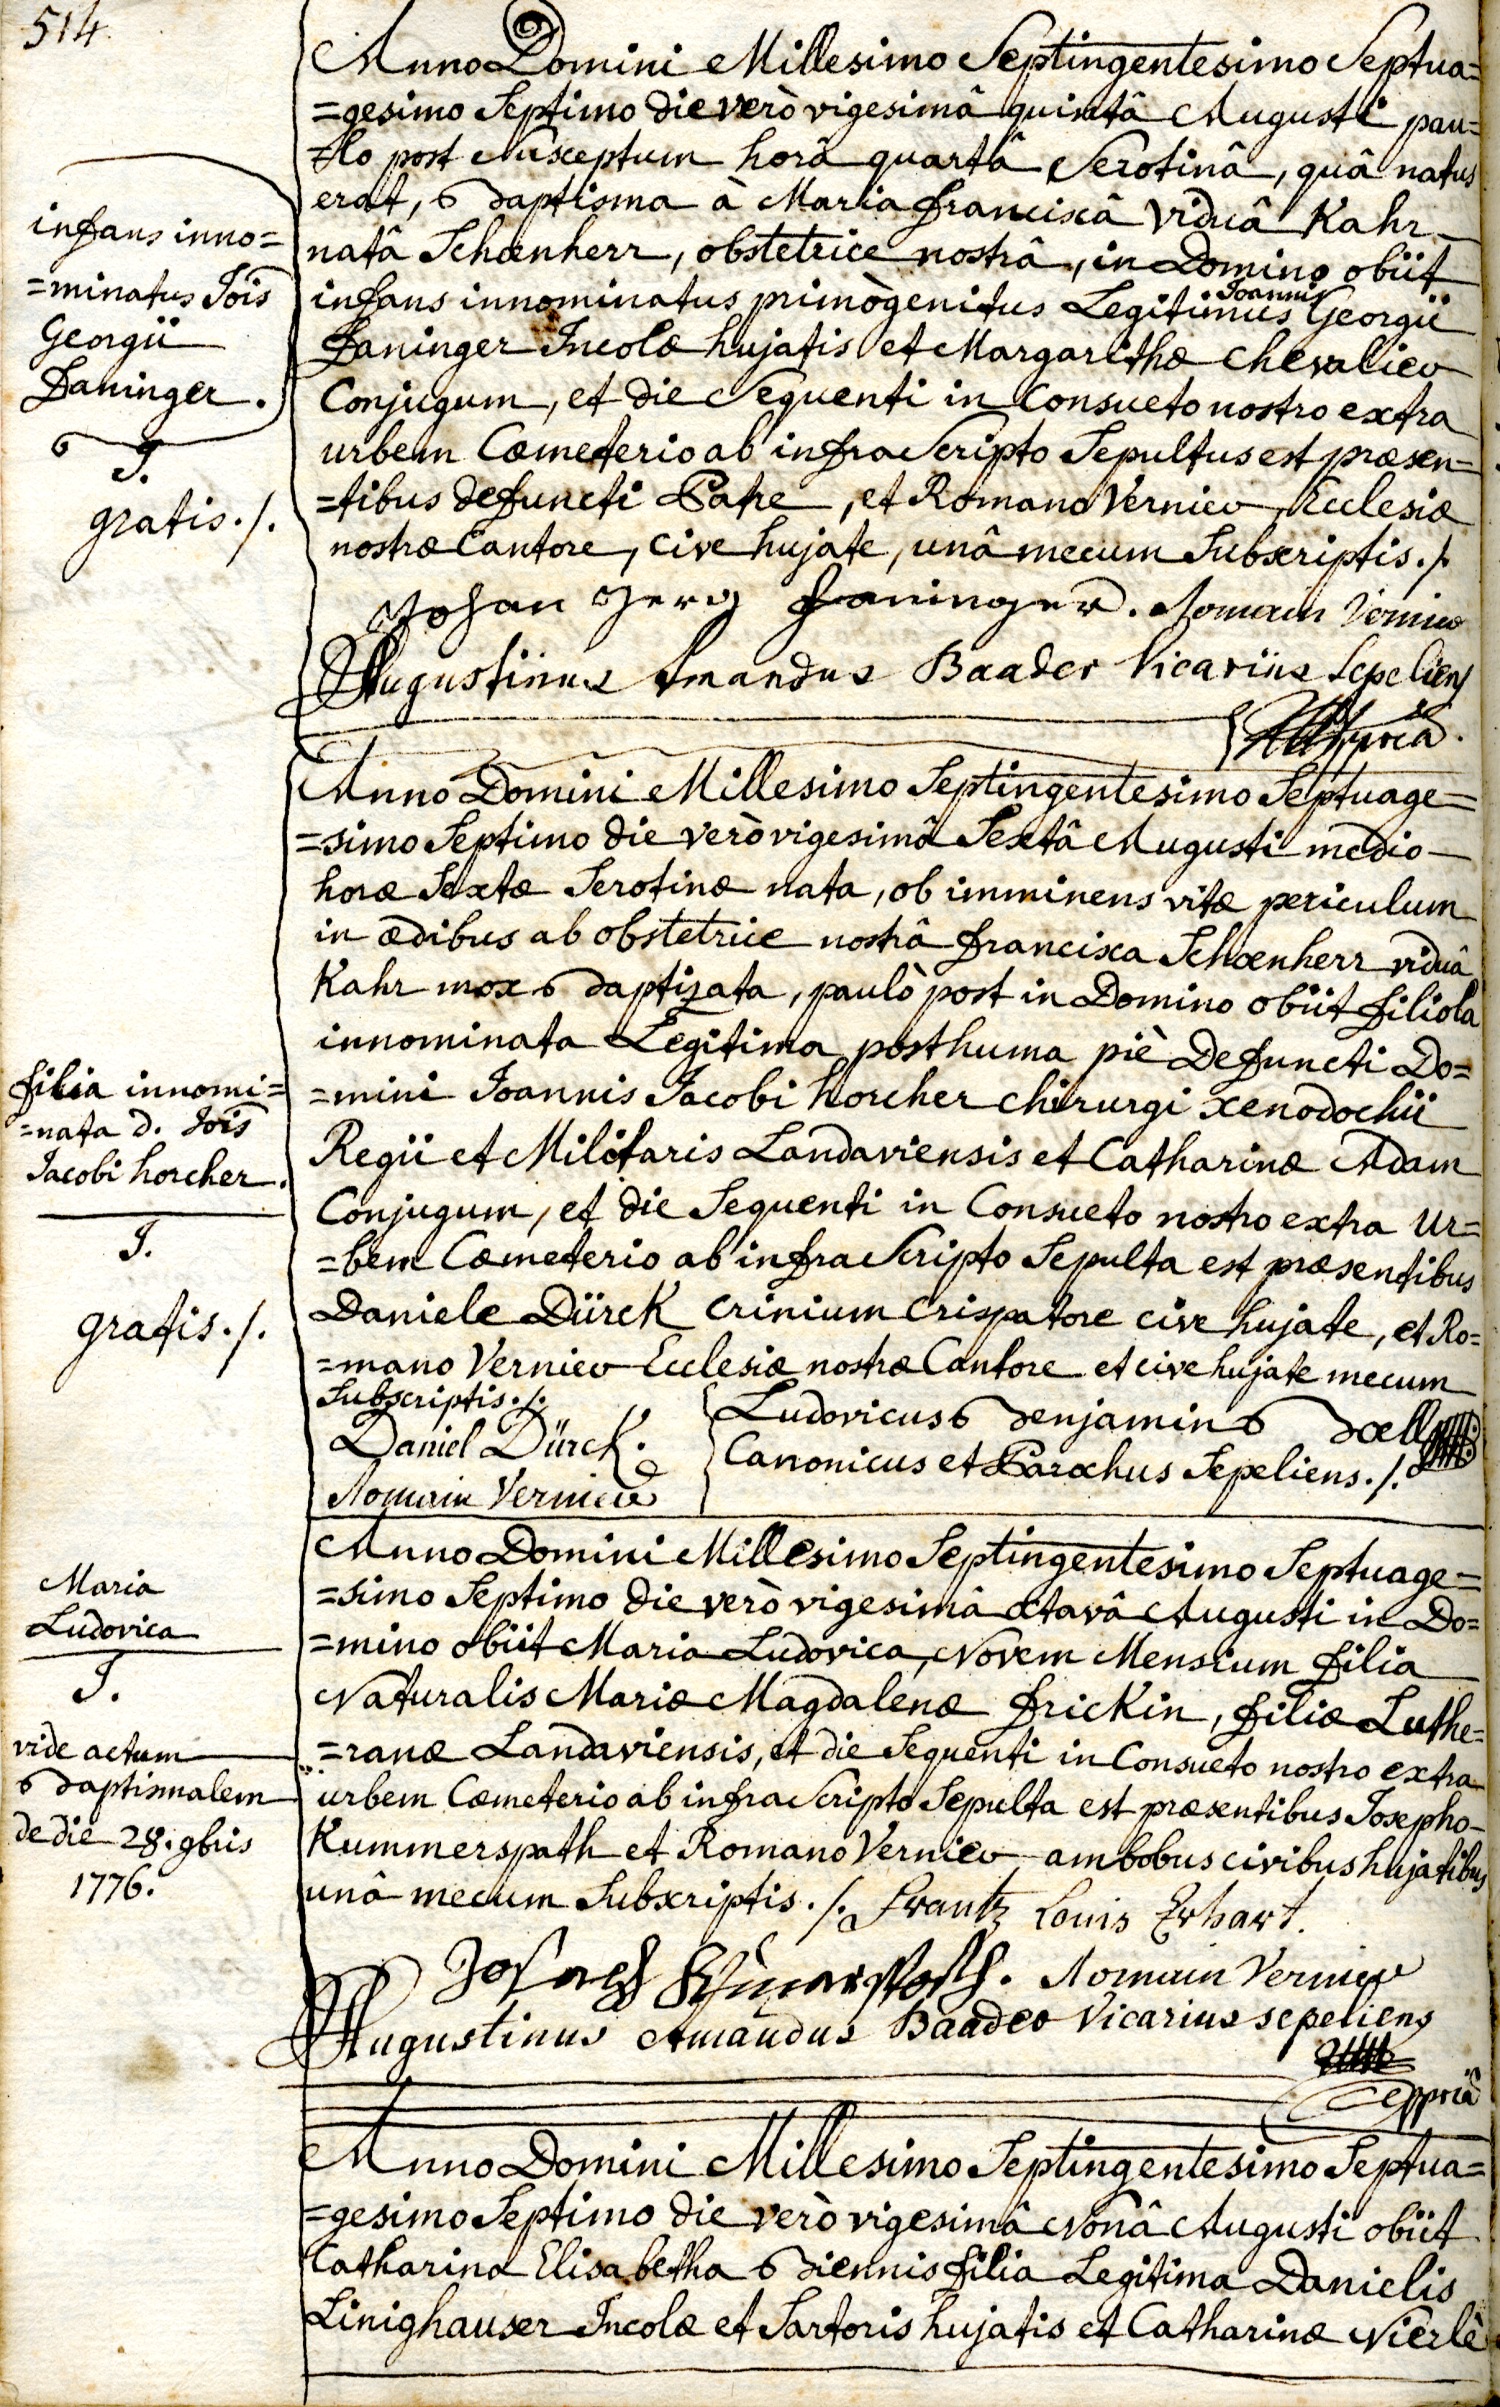 514.
Anno Domini Millesimo Septingentesimo Septua=
=gesimo Septimo die verò vigesimâ quintâ Augusti pau=
=lo post susceptum horâ quartâ Serotinâ, quâ natus
erat, baptisma à Maria franciscâ viduâ Kahr
natâ Schœnherr, obstetrice nostrâ, in Domino obiit
infans innominatus primògenitus Legitimus Joannis Georgii
faninger Incolæ hujatis et Margarithæ chevalier
Conjugum, et die Sequenti in Consueto nostro extra
urbem Cœmeterio ab infra Scripto Sepultus est præsen=
=tibus defuncti Patre, et Romano Vernier, Ecclesiæ
nostræ Cantore, cive hujate, unâ mecum Subscriptis ./.
infans inno=
=minatus Jois
Georgii
faninger.
J.
gratis ./.
Johan Jerg faninger. Romain Vernier
Augustinus Amandus Baader Vicarius Sepeliens
mppria.
Anno Domini Millesimo Septingentesimo Septuage=
=simo Septimo die verò vigesimâ Sextâ Augusti medio
horæ Sextæ Serotinæ nata, ob imminens vitæ periculum
in ædibus ab obstetrice nostrâ francisca Schœnherr viduâ
Kahr mox baptizata, paulò post in Domino obiit filiola
innominata Legitima posthuma piè Defuncti Do=
=mini Joannis Jacobi horcher chirurgi xenodochii
Regii et Militaris Landaviensis et Catharinæ Adam
Conjugum, et die Sequenti in Consueto nostro extra Ur=
=bem Cœmeterio ab infra Scripto Sepulta est præsentibus
Daniele Dürck crinium crispatore cive hujate, et Ro=
=mano Vernier Ecclesiæ nostræ Cantore et cive hujate mecum
Subscriptis ./.
filia innomi=
=nata d. Jois
Jacobi horcher.
J.
gratis ./.
Daniel Dürck.
Romain Vernier
Ludovicus benjamin bœll
Canonicus et Parochus Sepeliens ./.
Anno Domini Millesimo Septingentesimo Septuage=
=simo Septimo die verò vigesimâ octavâ Augusti in Do=
=mino obiit Maria Ludovica, Novem Mensium filia
Naturalis Mariæ Magdalenæ frickin, filiæ Luthe=
=ranæ Landaviensis, et die Sequenti in Consueto nostro extra
urbem Cœmeterio ab infra Scripto Sepulta est præsentibus Josepho
Kummerspath et Romano Vernier ambobus civibus hujatibus
unâ mecum Subscriptis ./. Frantz Louis Erhart.
Maria
Ludovica
J.
vide actum
baptismalem
de die 28. 9bris
1776.
Romain Vernier
Augustinus Amandus Baader Vicarius sepeliens
mppria
Anno Domini Millesimo Septingentesimo Septua=
=gesimo Septimo die verò vigesimâ Nonâ Augusti obiit
Catharina Elisabetha biennis filia Legitima Danielis
Linighauser Incolæ et Sartoris hujatis et Catharinæ Nierlè